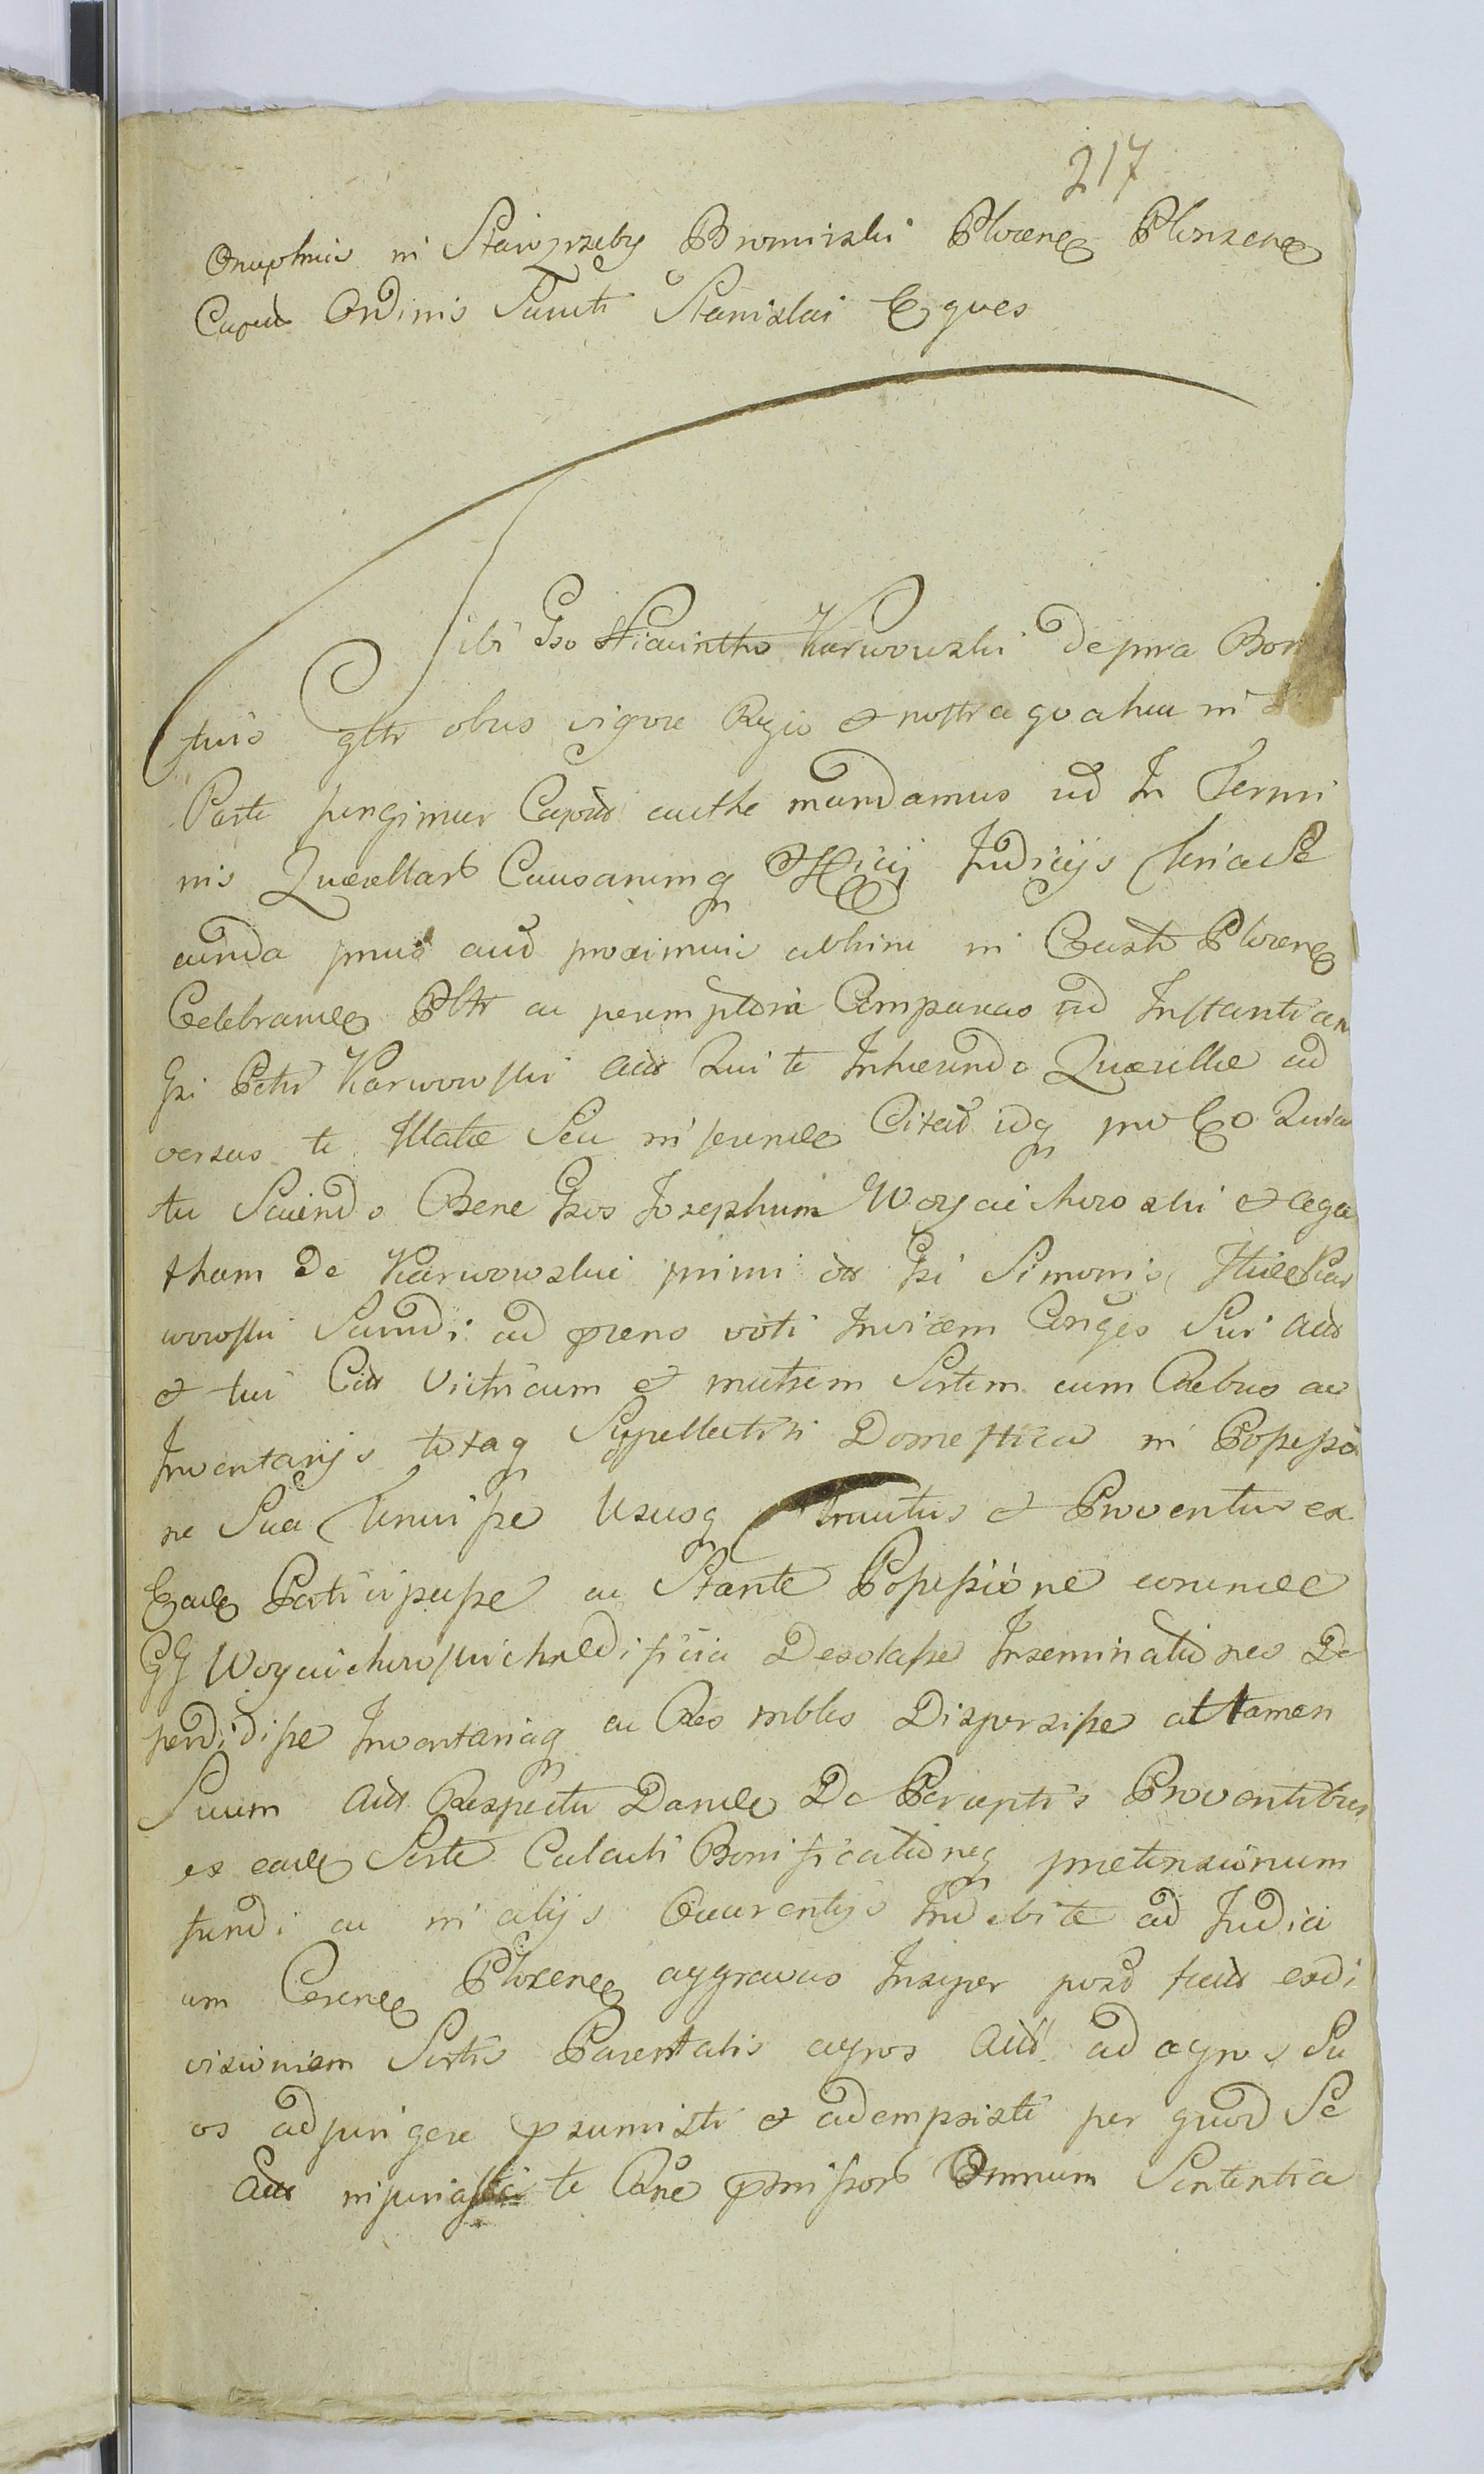 217
Onuphrius in Starozreby Bromirski Plocen Plonscen
Capus Ordinis Sancti Stanislai Eques
Tibi Gso Hiacintho Karwowski de pna Bon
tuis gltr obus vigore Regio et nostra qva hac in
Parte fungimur Capus authe mandamus ud In Termi
nis Querellarb Causarumq Officij Judicijs Terice Se
cunda prius aud proximius abhinc in Castr Plocen
Celebrand Pltr ac peremptorie Compareas ad Instantiam
Gsi Petri Karwowski Acts Qui te Inhaerendo Querellae ad
versus te Illatae Seu inferend Citat idq pro Eo Quia
tu Sciendo Bene Gsos Josephum Woyciechowski et Aga
tham de Karwowskie primi ods Gsi Simonis Huec Kar
wowski Secundi ad praens voti Invicem Conges Sui Acts
et tui Cits Vitricum et matrem Sortem cum Rebus ac
Inventarijs totaq Suppellectili Domestica in Possessio
ne Sua Tenuisse Ususq Fructus et Proventus ex
Ead Participasse ac Stante Possessione eorund
GG Woyciechowskich Aedificia Desolasse Inseminationes De
perdidisse Inventariaq ac Res mbles Dispersisse attamen
Suum Acts Respectu Dand De Perceptis Proventibus
ex ead Sorte Calculi Bonificationeq pretensionum
fundi ac in alijs Occurentijs Indebite ad Judici
um Terren Plocen aggravas Insuper post factts exdi
visionem Sortis Parentalis agros Acts ad agros Su
os adjungere praesumsisti et adempsisti per quod Se
Acts injuriasti te Rne pmissorb Omnium Sententia